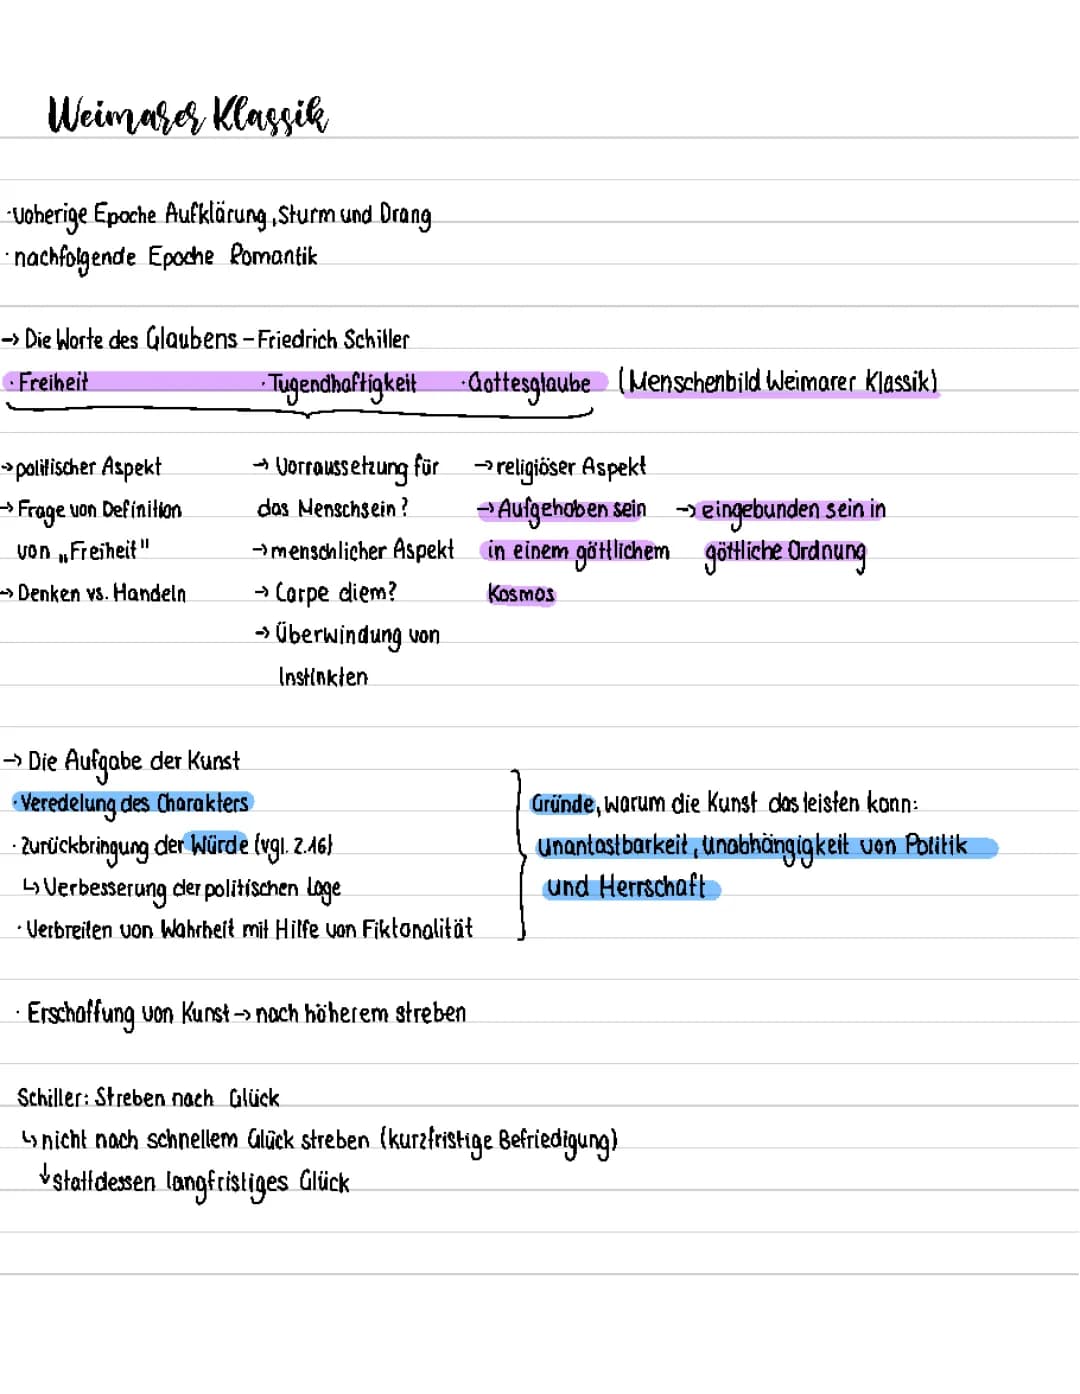 Weimarer Klassik
·voherige Epoche Aufklärung, Sturm und Drang
·nachfolgende Epoche Romantik
→ Die Worte des Glaubens – Friedrich Schiller
·Freiheit ·Tugendhaftigkeit ·Gottesglaube (Menschenbild Weimarer Klassik)
→politischer Aspekt → Vorraussetzung für →religiöser Aspekt
→ Frage von Definition das Menschsein? →Aufgehoben sein → eingebunden sein in
von „Freiheit" →menschlicher Aspekt in einem göttlichem göttliche Ordnung
→ Denken vs. Handeln → Carpe diem? Kosmos
→ Überwindung von
Instinkten
→ Die Aufgabe der Kunst
·Veredelung des Charakters Gründe, warum die Kunst das leisten kann:
·Zurückbringung der Würde (vgl. Z.16) Unantastbarkeit, Unabhängigkeit von Politik
↳ Verbesserung der politischen Lage und Herrschaft
·Verbreiten von Wahrheit mit Hilfe von Fiktonalität
· Erschaffung von Kunst → nach höherem streben
Schiller: Streben nach Glück
↳ nicht nach schnellem Glück streben (kurzfristige Befriedigung)
↓stattdessen langfristiges Glück